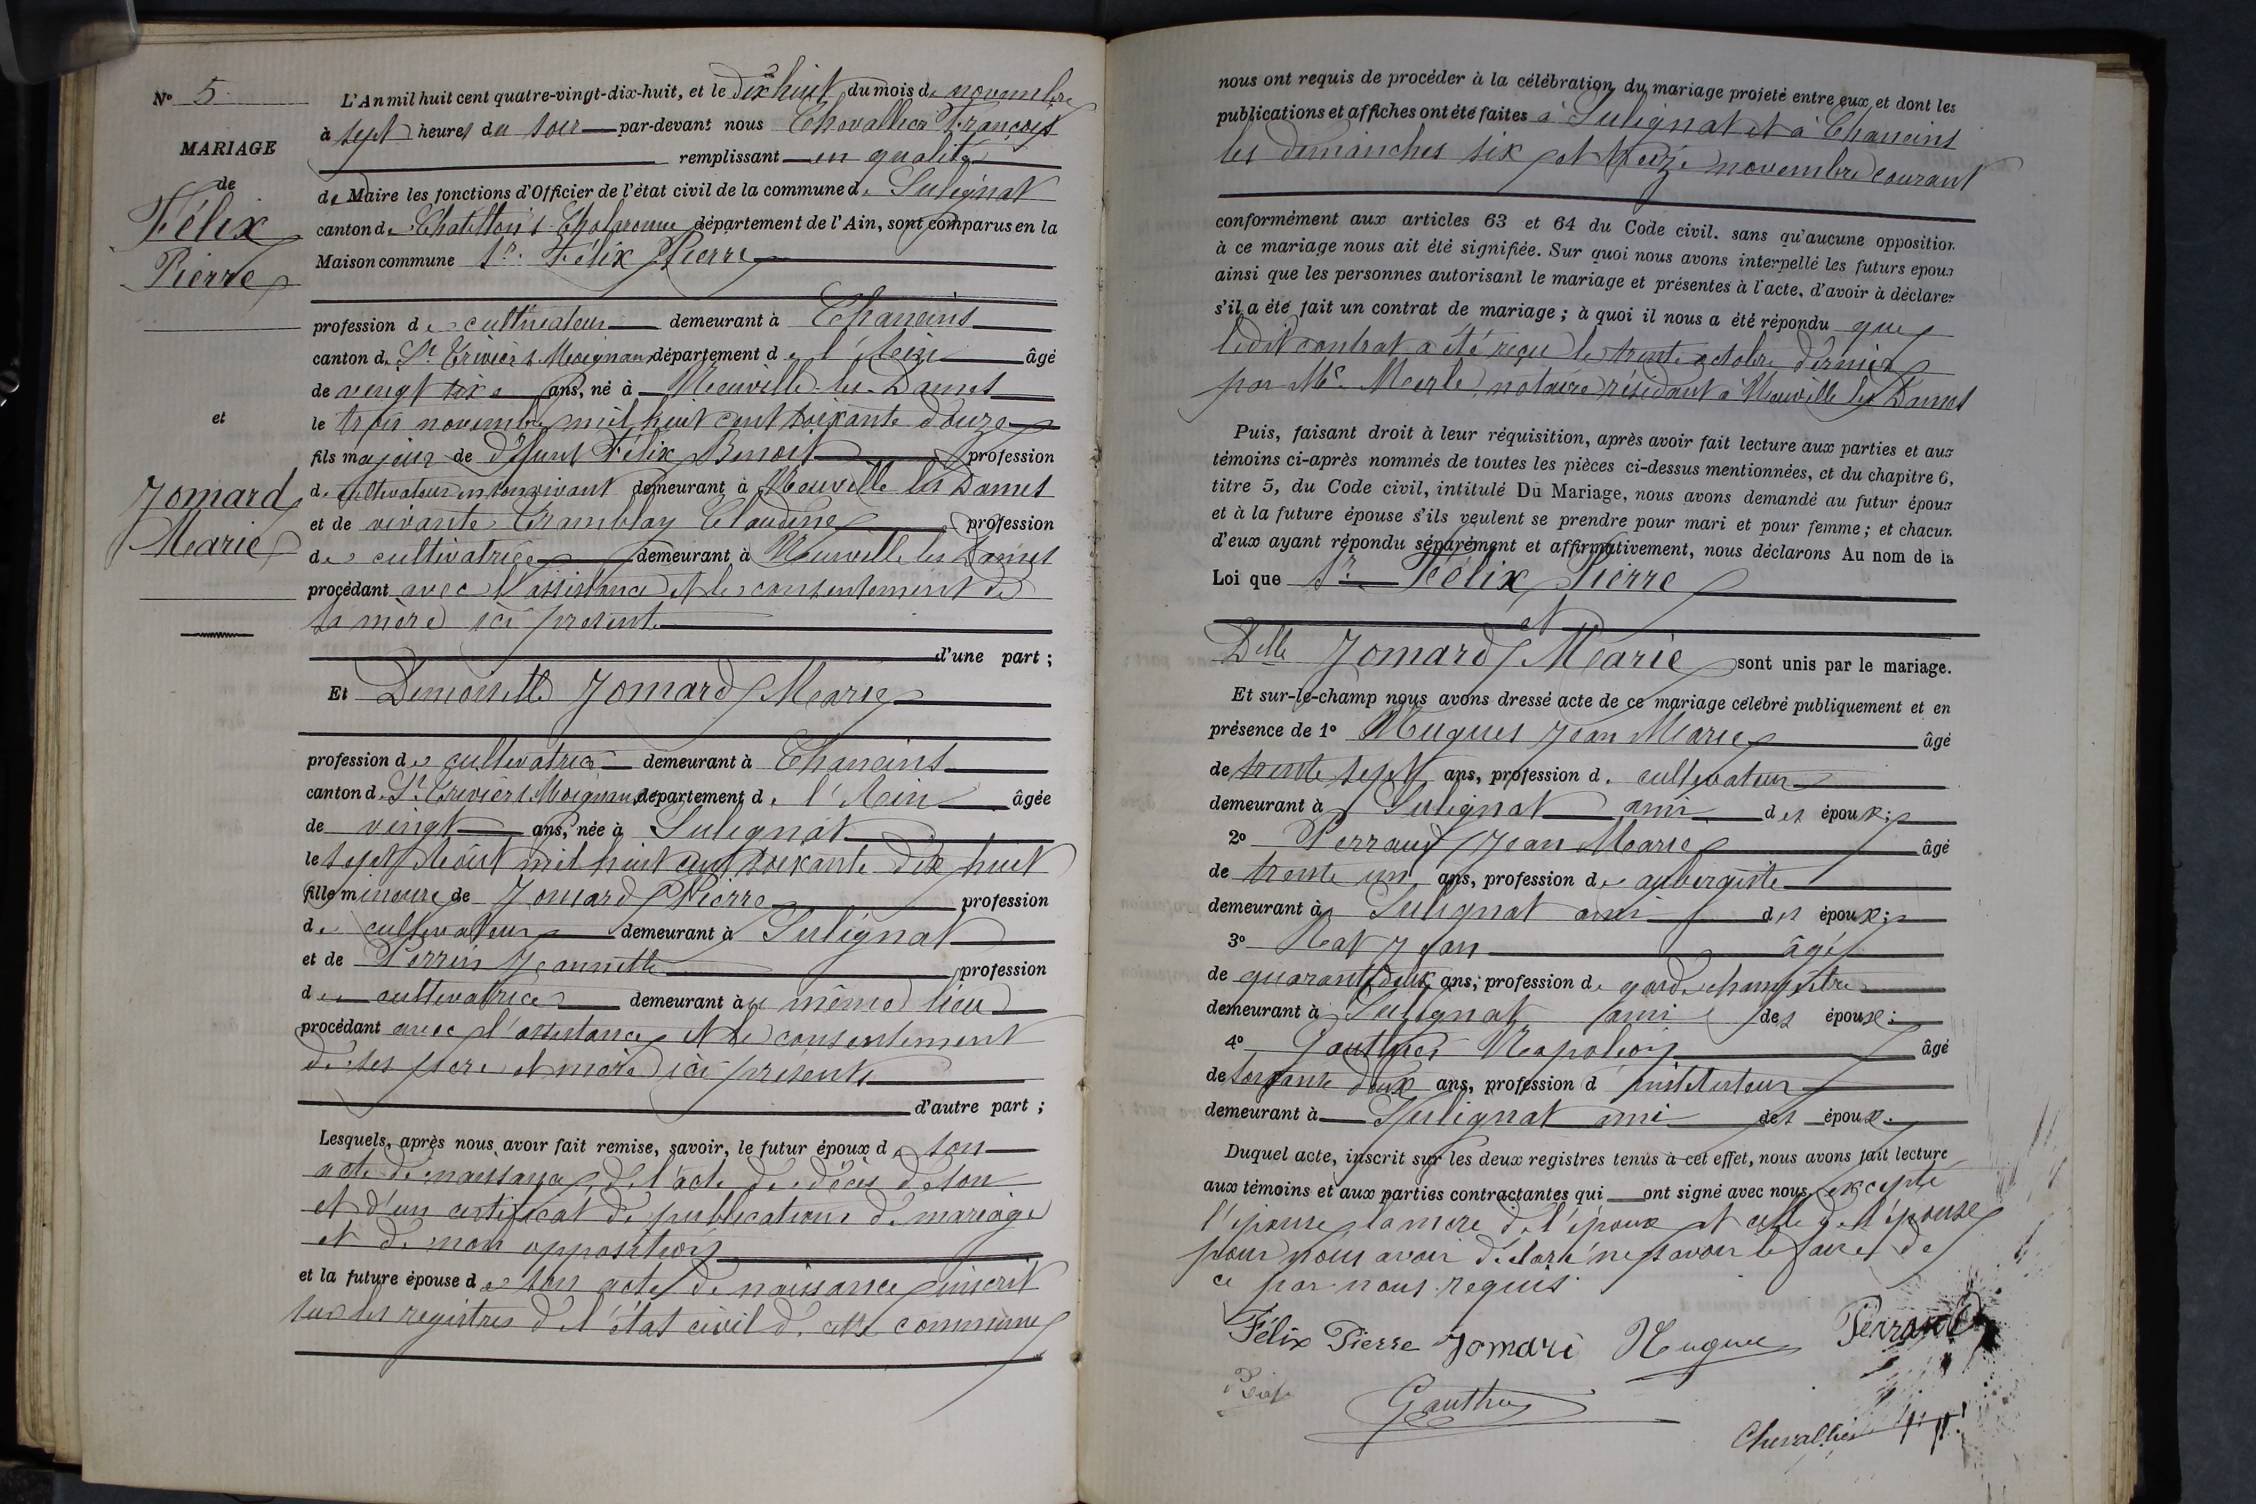 N° 5
MARIAGE
de
Félix
Pierre
et
Jomard
Marie
L'An mil huit cent quatre-vingt-dix-huit, et le dix huit du mois de novembre
à sept heures du soir par-devant nous Chevallier François
remplissant en qualité
de Maire les fonctions d'Officier de l'état civil de la commune de Sulignat
canton de Chatillon s Chalaronne département de l'Ain, sont comparus en la
Maison commune Sr. Félix Pierre
profession de cultivateur demeurant à Chaneins
canton de St Trivier s Moignans département de l'Ain âgé
de vingt six ans, né à Neuville-les-Dames
le trois novembre mil huit cent soixante douze
fils majeur de défunt Félix Benoit profession
de cultivateur en son vivant demeurant à Neuville les Dames
et de vivante Tramblay Claudine profession
de cultivatrice demeurant à Neuville les Dames
procédant avec l'assistance et le consentement de
sa mère ici présente
d'une part ;
Et Demoiselle Jomard Marie
profession de cultivatrice demeurant à Chaneins
canton de St Trivier s Moignans département de l'Ain âgée
de vingt ans, née à Sulignat
le sept Août mil huit cent soixante dix huit
fille mineure de Jomard Pierre profession
de cultivateur demeurant à Sulignat
et de Perrin Jeannette profession
de cultivatrice demeurant à même lieu
procédant avec l'assistance et le consentement
de ses père et mère ici présents
d'autre part ;
Lesquels, après nous avoir fait remise, savoir, le futur époux de son
acte de naissance, de l'acte de décès de son
et d'un certificat de publications de mariage
et de non opposition
et la future épouse de son acte de naissance inscrit
sur les registres de l'état civil de cette commune
nous ont requis de procéder à la célébration du mariage projeté entre eux et dont les
publications et affiches ont été faites à Sulignat et à Chaneins
les dimanches six et treize novembre courant
conformément aux articles 63 et 64 du Code civil. sans qu'aucune opposition
à ce mariage nous ait été signifiée. Sur quoi nous avons interpellé les futurs époux
ainsi que les personnes autorisant le mariage et présentes à l'acte, d'avoir à déclarer
s'il a été fait un contrat de mariage ; à quoi il nous a été répondu que
ledit contrat a été reçu le trente octobre dernier
par Me Merle, notaire résidant à Neuville les Dames
Puis, faisant droit à leur réquisition, après avoir fait lecture aux parties et aux
témoins ci-après nommés de toutes les pièces ci-dessus mentionnées, et du chapitre 6,
titre 5, du Code civil, intitulé Du Mariage, nous avons demandé au futur époux
et à la future épouse s'ils veulent se prendre pour mari et pour femme ; et chacun
d'eux ayant répondu séparément et affirmativement, nous déclarons Au nom de la
Loi que Sr Félix Pierre
et
Delle Jomard Marie sont unis par le mariage.
Et sur-le-champ nous avons dressé acte de ce mariage célébré publiquement et en
présence de 1° Hugues Jean Marie âgé
de trente sept ans, profession de cultivateur
demeurant à Sulignat ami des époux ;
2° Perraud Jean Marie âgé
de trente un ans, profession de aubergiste
demeurant à Sulignat ami des époux ;
3° Rat Jean âgé
de quarante deux ans, profession de garde champêtre
demeurant à Sulignat ami des époux ;
4° Gauthier Napoléon âgé
de soixante deux ans, profession d instituteur
demeurant à Sulignat ami des époux.
Duquel acte, inscrit sur les deux registres tenus à cet effet, nous avons fait lecture
aux témoins et aux parties contractantes qui ont signé avec nous, excepté
l'épouse, la mère de l'époux et celle de l'épouse
pour nous avoir déclaré ne savoir le faire de
ce par nous requis.
Félix Pierre Jomard Hugues Perraud
Rat
Gauthier
Chevallier